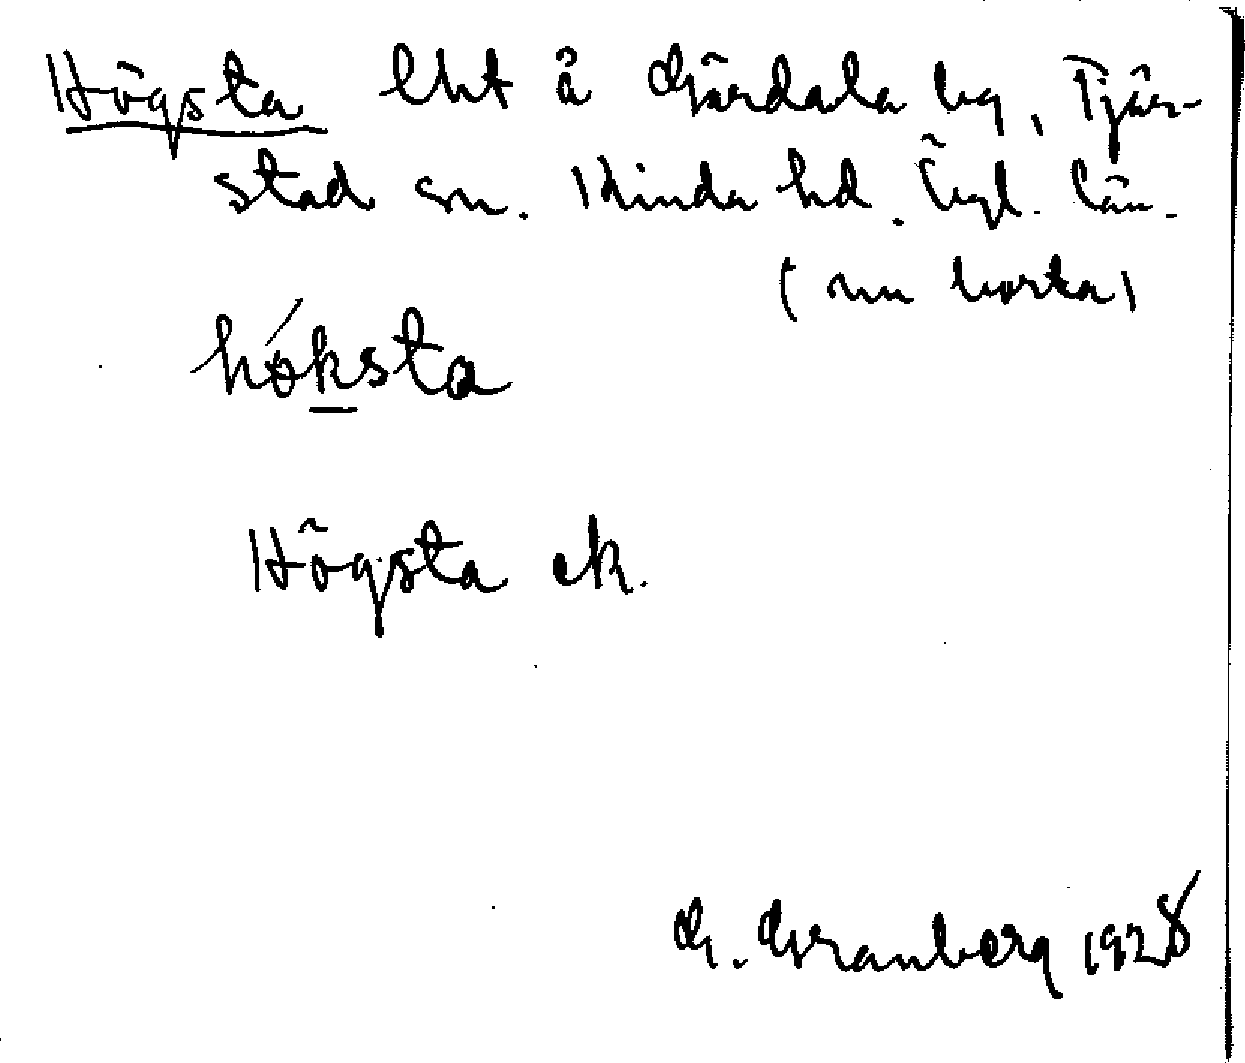 Högsta lht å Gärdala by, Tjär-
stad sn. Kinda hd. Ögl. län.
(nu borta)
hóksta
Högsta ek.
G. Granberg 1928